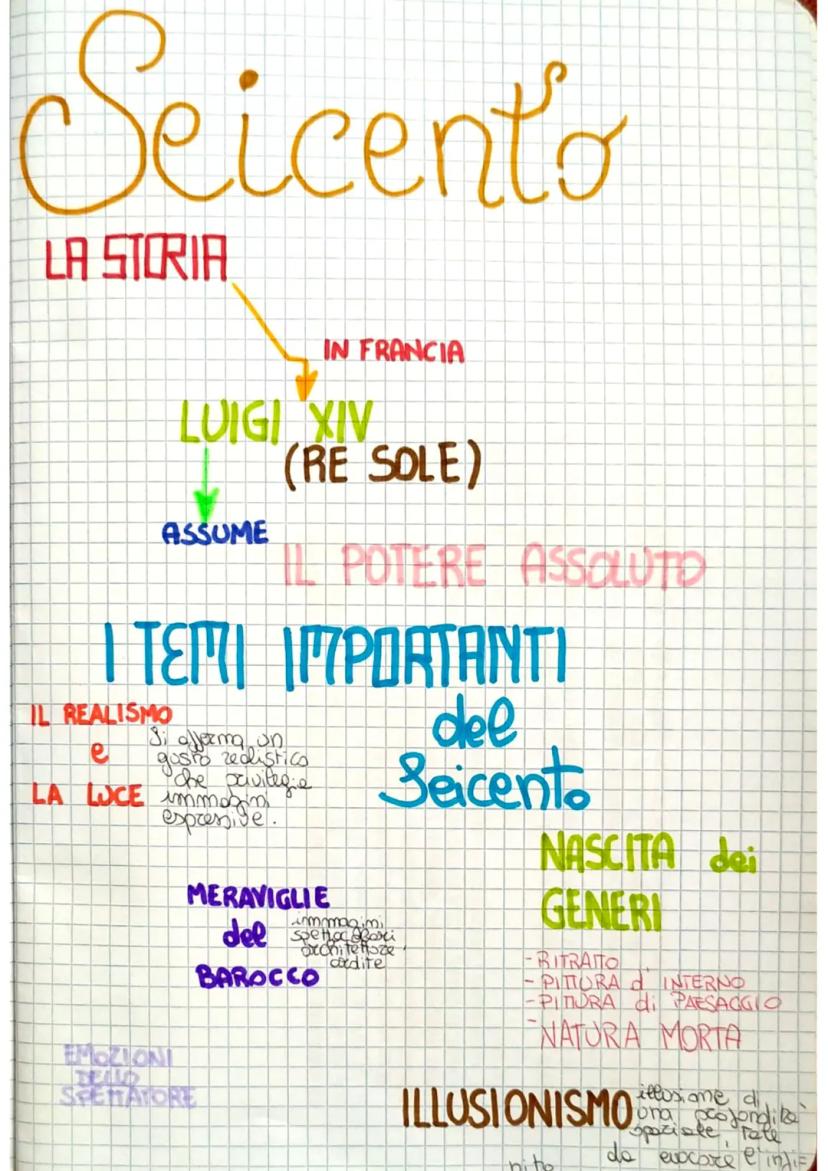 Seicento
LA STORIA
IN FRANCIA
LUIGI XIV
(RE SOLE)
ASSUME
IL POTERE ASSOLUTO
I TEMI IMPORTANTI
del
Seicento
IL REALISMO
e
LA LUCE
Si afferma un
gusto realistico
che privilegia
immagini
espressive.
NASCITA dei
GENERI
- RITRATTO
- PITTURA d'INTERNO
- PITTURA di PAESAGGIO
- NATURA MORTA
MERAVIGLIE
del
BAROCCO
immagini
spettacolari
architetture
ardite
EMOZIONI
DELLO
SPETTATORE
ILLUSIONISMO
illusione di
una profondità
spaziale, tale
da evocare l'infi=
nito